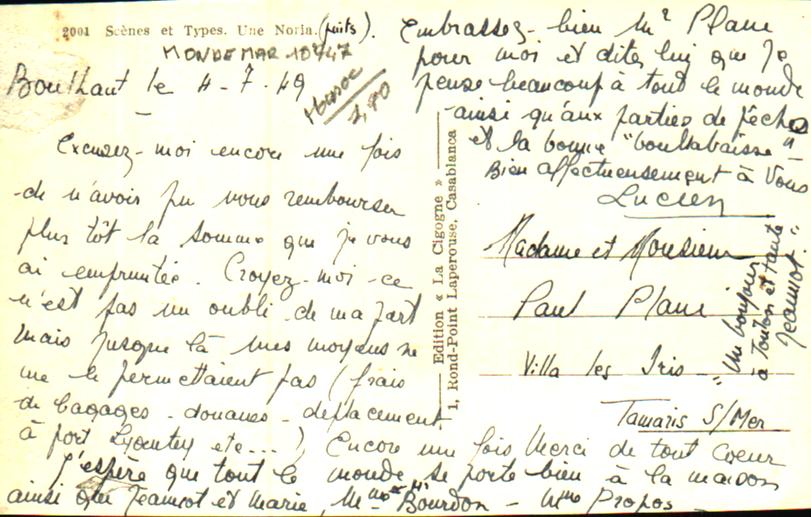 2001 Scènes et Types. Une Noria. (puits).
MONDEMAR 10747
Maroc
1,80
Boulhaut le 4-7-49
Excusez-moi encore une fois
de n'avoir pu vous rembourser
plus tôt la somme que je vous
ai empruntée. Croyez-moi ce
n'est pas un oubli de ma part
mais jusque là mes moyens ne
me le permettaient pas (frais
de bagages - douanes - déplacement
à port Lyautey etc...) Encore une fois Merci de tout coeur
J'espère que tout le monde se porte bien à la maison
ainsi que Jeannot et Marie, Mme et Mr Bourdon - Mme Propos
Embrassez-bien Mr Plane
pour moi et dites lui que je
pense beaucoup à tout le monde
ainsi qu'aux parties de pêche
et la bonne "bouillabaisse"
Bien affectueusement à Vous
Lucien
Edition « La Cigogne »
1, Rond-Point Laperouse, Casablanca
Madame et Monsieur
Paul Plane
Villa les Iris
Tamaris S/Mer
"Un bonjour
à Tonton et tante
Jeannot."